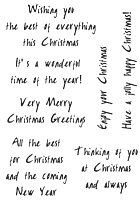 Wishing you
the best of everything
this Christmas
It's a wonderful
time of the year!
Very Merry
Christmas Greetings
Enjoy your Christmas
Have a jolly happy Christmas!
All the best
for Christmas
and the coming
New Year
Thinking of you
at Christmas
and always